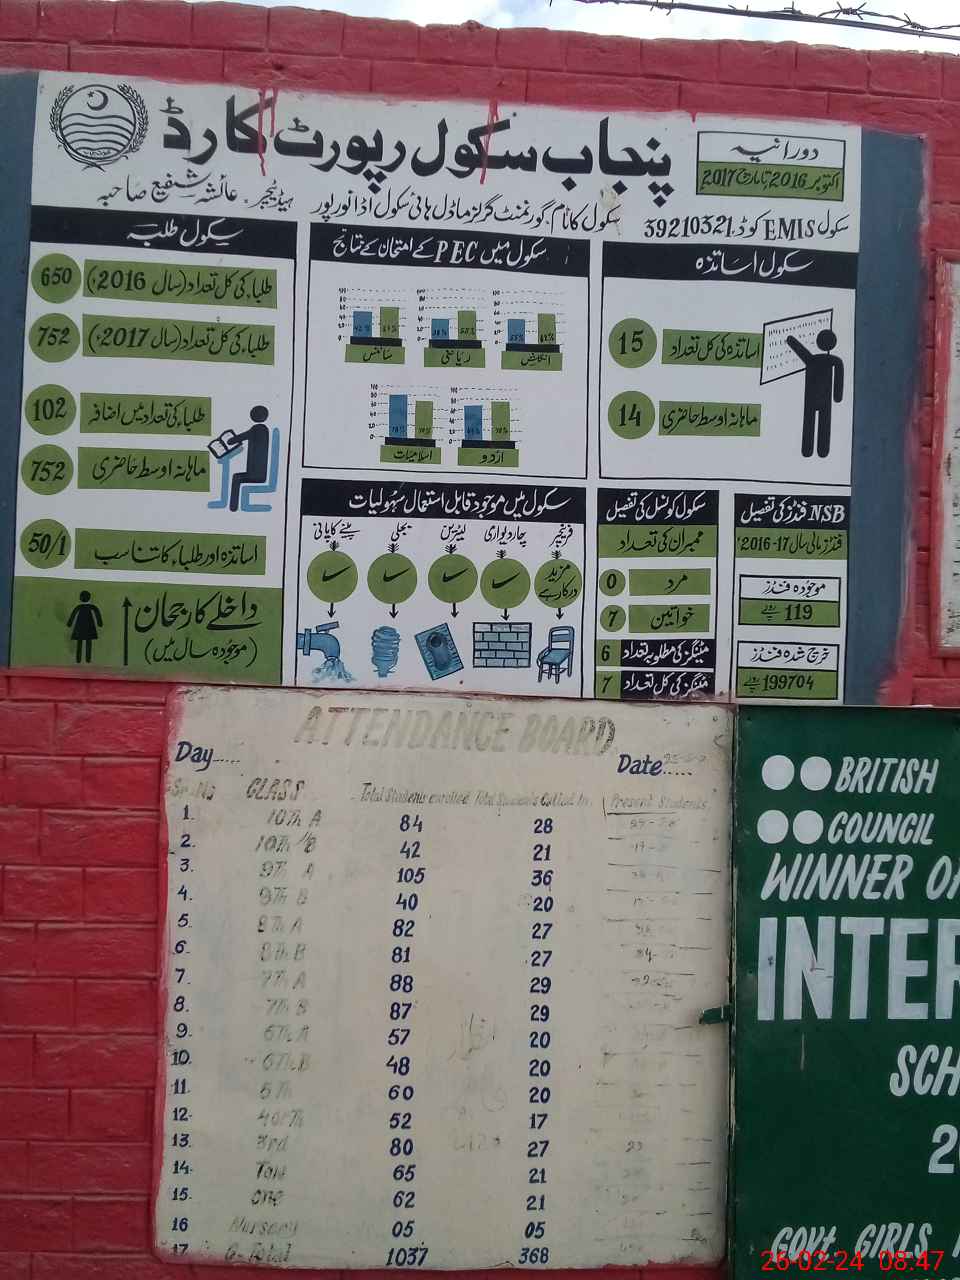 پنجاب سکول رپورٹ کارڈ
دورانیہ
اکتوبر 2016 تا مارچ 2017ء
سکول EMIS کوڈ: 39210321
سکول کا نام: گورنمنٹ گرلز ماڈل ہائی سکول اڈا نور پور
ہیڈ ٹیچر: عائشہ شفیع صاحبہ
سکول اساتذہ
15 اساتذہ کی کل تعداد
14 ماہانہ اوسط حاضری
سکول میں PEC کے امتحان کے نتائج
سائنس
ریاضی
انگلش
اسلامیات
اردو
سکول طلبہ
650 طلباء کی کل تعداد (سال 2016ء)
752 طلباء کی کل تعداد (سال 2017ء)
102 طلباء کی تعداد میں اضافہ
752 ماہانہ اوسط حاضری
50/1 اساتذہ اور طلباء کا تناسب
داخلے کا رجحان
(موجودہ سال میں)
سکول میں موجود قابل استعمال سہولیات
فرنیچر
چار دیواری
لیٹرین
بجلی
پینے کا پانی
مزید درکار ہے
سکول کونسل کی تفصیل
ممبران کی تعداد
0 مرد
7 خواتین
6 میٹنگز کی مطلوبہ تعداد
7 میٹنگز کی کل تعداد
NSB فنڈز کی تفصیل
فنڈز مالی سال 17-2016ء
موجودہ فنڈز
119 روپے
خرچ شدہ فنڈز
199704 روپے
ATTENDANCE BOARD
Day...... Date......
Sr.No CLASS Total Students enrolled Total Students Called In. Present Students
1. 10Th A 84 28
2. 10Th B 42 21
3. 9Th A 105 36
4. 9Th B 40 20
5. 8Th A 82 27
6. 8Th B 81 27
7. 7Th A 88 29
8. 7Th B 87 29
9. 6Th A 57 20
10. 6Th B 48 20
11. 5Th 60 20
12. 4orTh 52 17
13. 3rd 80 27
14. Two 65 21
15. One 62 21
16 Nursery 05 05
17. G-Total 1037 368
BRITISH
COUNCIL
WINNER OF
INTER
SCH
2
GOVT GIRLS
26-02-24 08:47